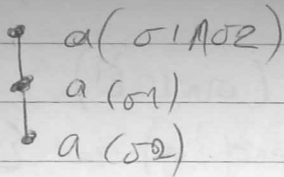 a(σ1∧σ2)
a(σ1)
a(σ2)